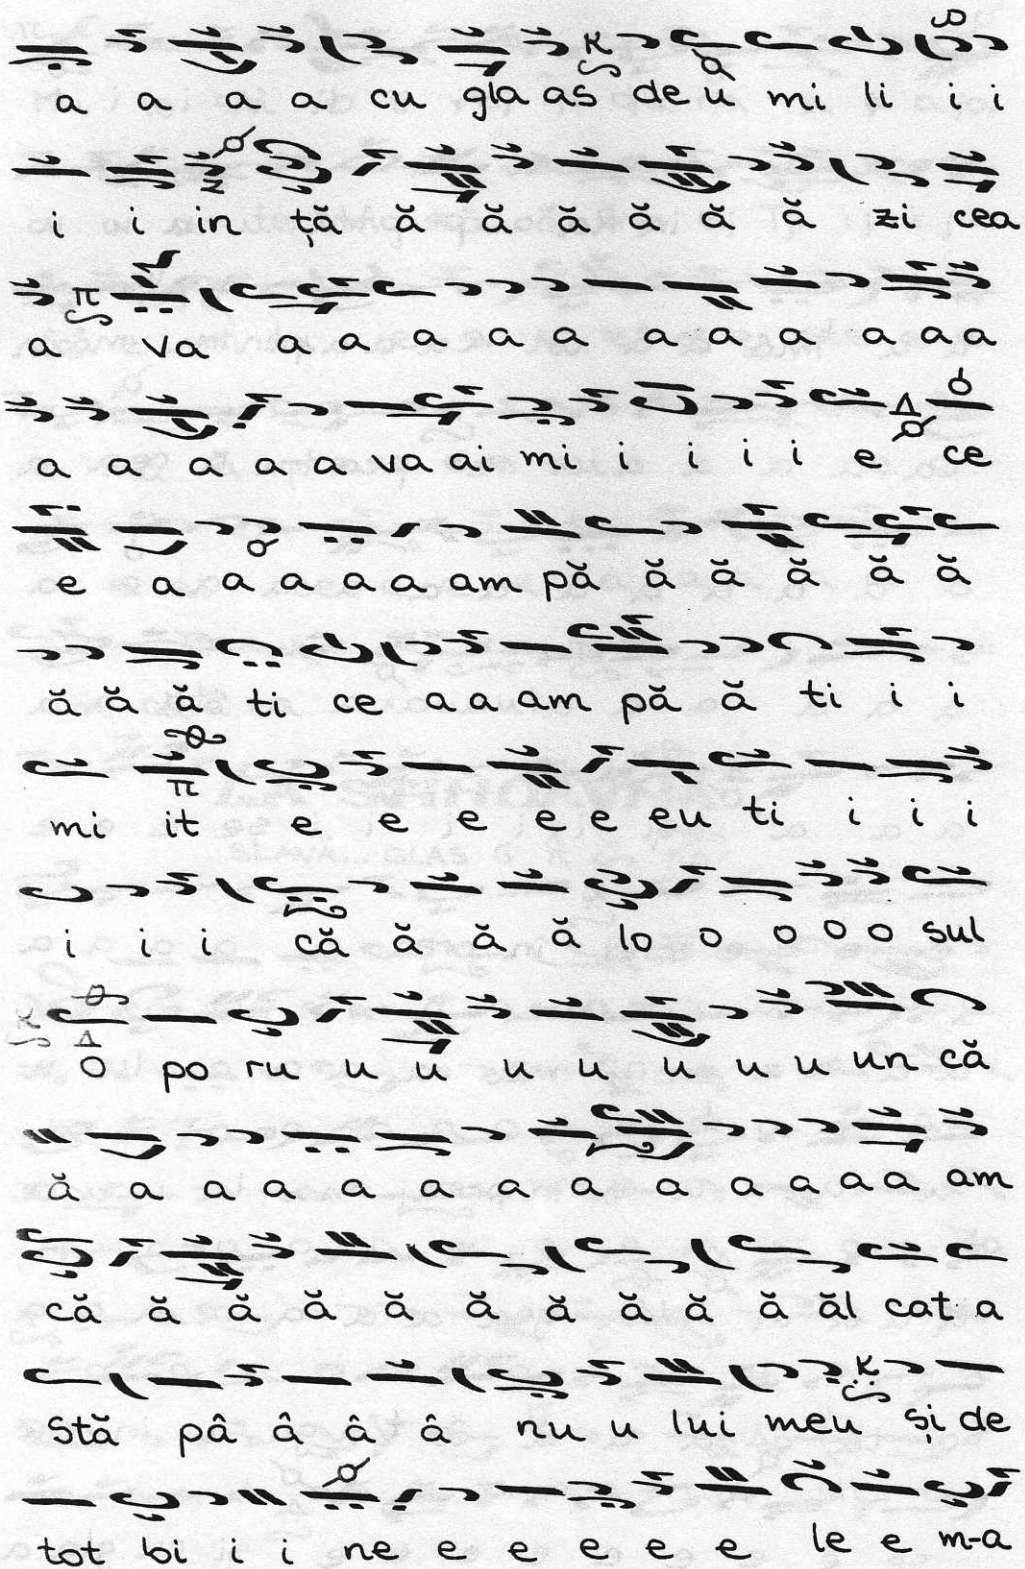 a a a a cu gla as de u mi li i i
i i in ță ă ă ă ă ă ă zi cea
a va a a a a a a a a a a a
a a a a a va ai mi i i i i e ce
e a a a a a am pă ă ă ă ă ă
ă ă ă ti ce a a am pă ă ti i i
mi it e e e e e eu ti i i i
i i i că ă ă ă lo o o o o sul
o po ru u u u u u u u un că
ă a a a a a a a a a a a a am
că ă ă ă ă ă ă ă ă ă ăl cat a
stă pâ â â â nu u lui meu și de
tot bi i i ne e e e e e le e m-a